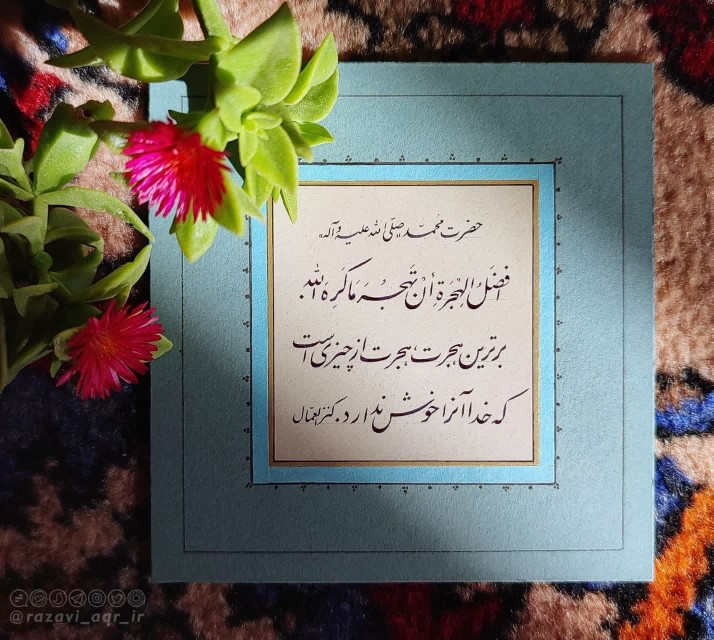 حضرت محمد صلی الله علیه و آله
افضَلُ الهِجْرَةِ أنْ تَهجُرَ مَا كَرِهَ اللهُ.
برترین هجرت، هجرت از چیزی است
که خدا آنرا خوش ندارد. کنز العمال
@razavi_aqr_ir